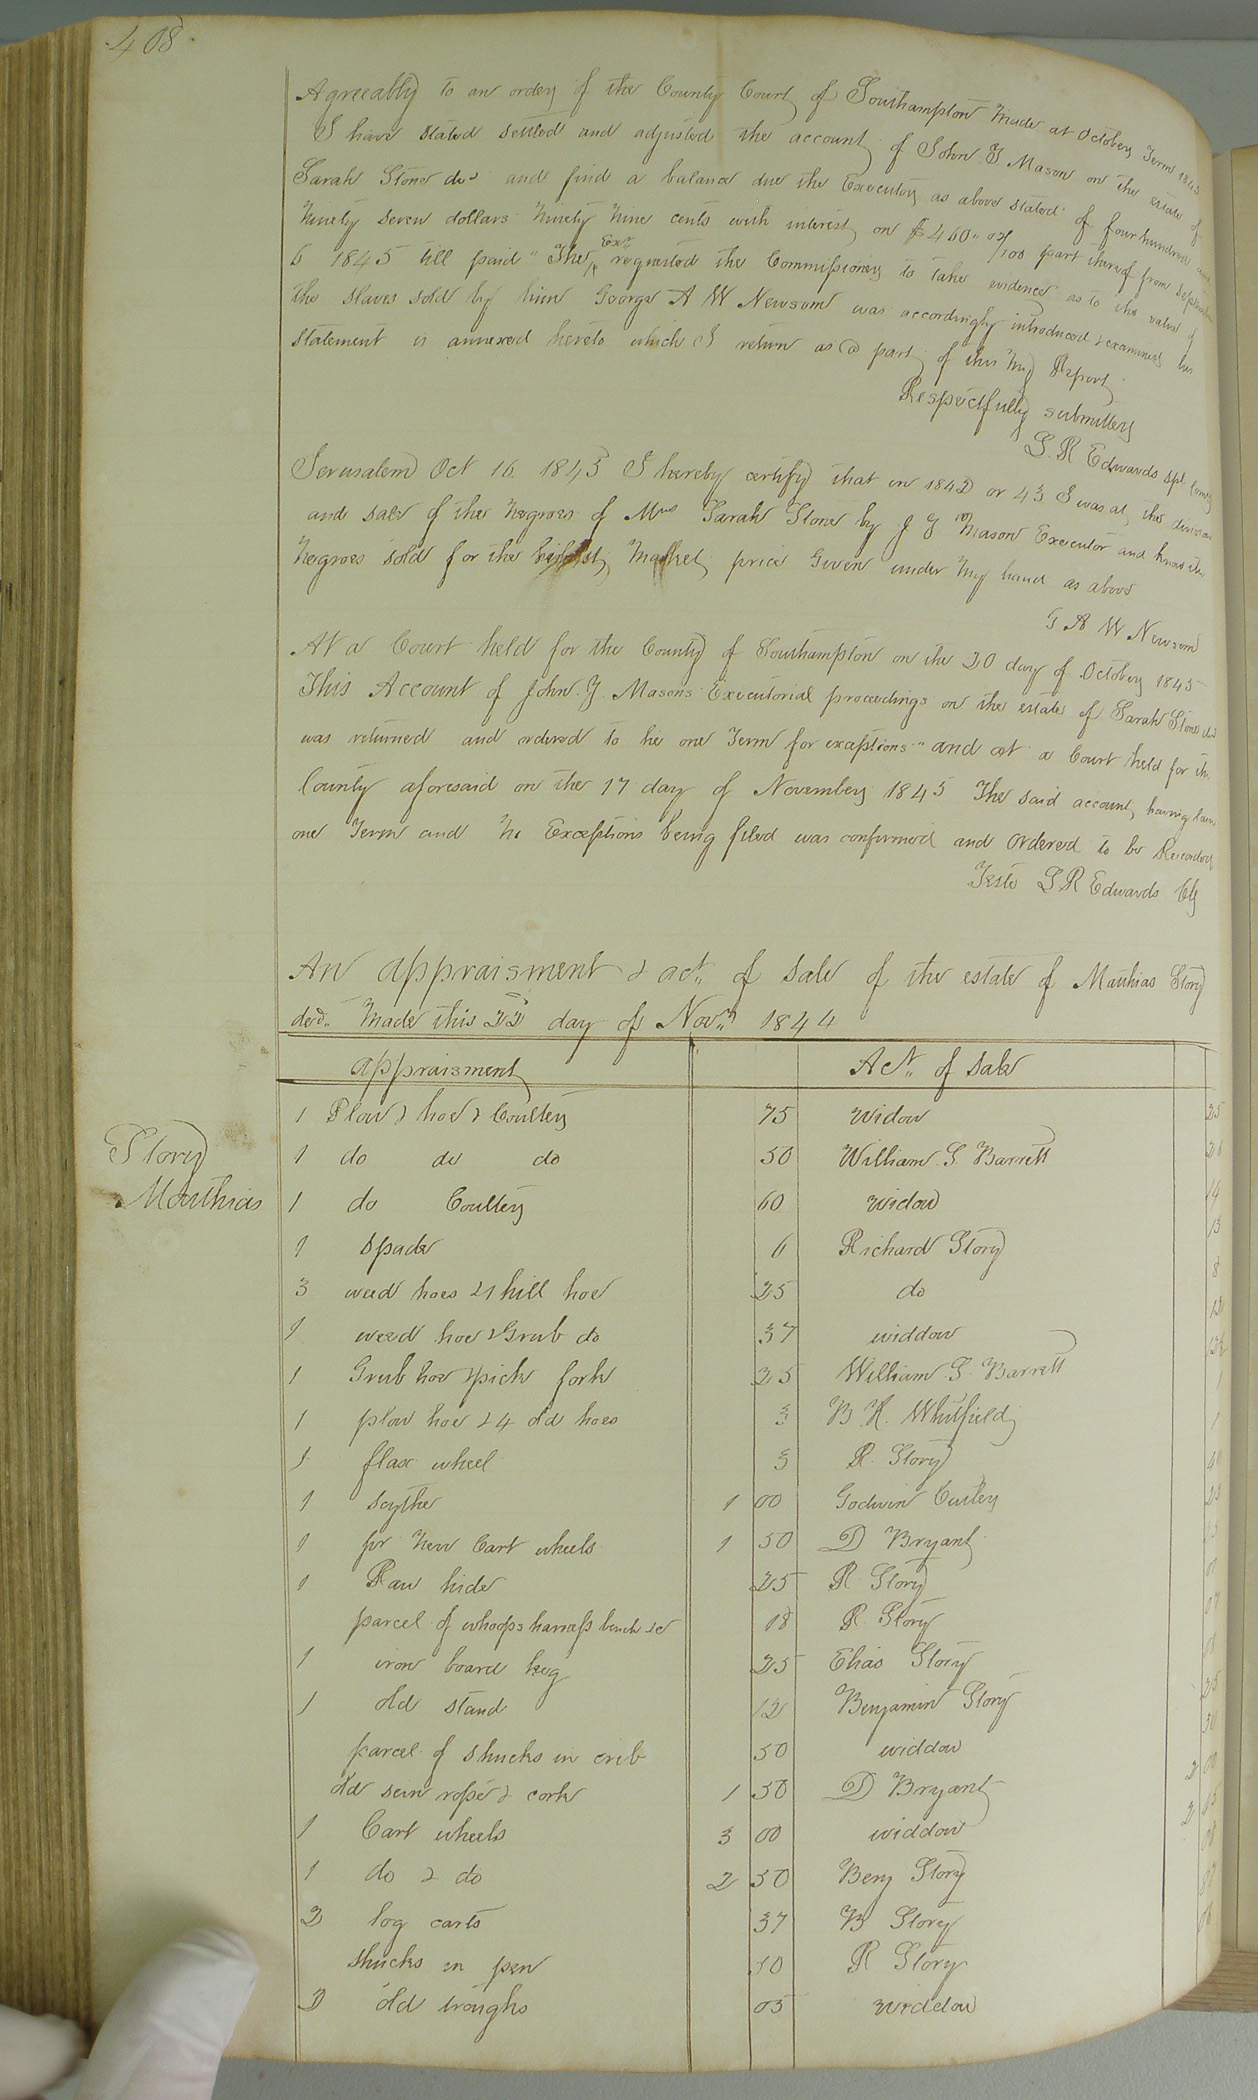 408
Agreeably to an order of the County Court of Southampton made at October Term 1845
I have stated settled and adjusted the account of John Y Mason on the estate of
Sarah Stone decd and find a balance due the Executor as above stated of four hundred and
Ninety seven dollars Ninety Nine cents with interest on $460 " 07/100 part thereof from September
6 1845 till paid " The Exr requested the Commissioner to take evidence as to the value of
the slaves sold by him George A W Newsom was accordingly introduced & examined his
statement is annexed hereto which I return as a part of this my Report
Respectfully submitted
L. R Edwards Spl Comr
Jerusalem Oct 16 1845 I hereby certify that in 1842 or 43 I was at the division
and sale of the Negroes of Mrs Sarah Stone by J Y Mason Executor and know the
Negroes sold for the highest Market price Given under my hand as above
G A W Newsom
At a Court held for the County of Southampton on the 20 day of October 1845
This Account of John Y. Masons Executorial proceedings on the estate of Sarah Stone decd
was returned and ordered to lie one Term for exceptions " and at a Court held for the
County aforesaid on the 17 day of November 1845 The said account having lain
one Term and No Exceptions being filed was confirmed and Ordered to be Recorded
Teste L R Edwards Clk
An appraisment & act. of sale of the estate of Matthias Story
decd. Made this 22d day of Novr 1844
appraisment Act. of Sale
Story
Matthias
1 Plow & hoe & Coulter 75 Widow 25
1 do do do 50 William G. Barrett
1 do Coulter 60 widow 14
1 Spade 6 Richard Story
3 weed hoes & 1 hill hoe 25 do 8
1 weed hoe & Grub do 37 widdow
1 Grub hoe & pick fork 25 William G. Barrett
1 plow hoe & 4 old hoes 3 B. K. Whitfield
1 flax wheel 3 R. Story
1 Scythe 1 00 Godwin Cutler
1 pr New Cart wheels 1 50 D Bryant
1 Raw hide 25 R Story
parcel of whoops harness bench &c 18 R Story
1 iron board keg 25 Elias Story
1 old stand 12 Benjamin Story
parcel of shucks in crib 50 widdow
old sein rope & cork 1 50 D Bryant
1 Cart wheels 3 00 widdow
1 do & do 2 50 Benj Story
2 log carts 37 B Story
Shucks in pen 50 R Story
2 old troughs 05 widdow